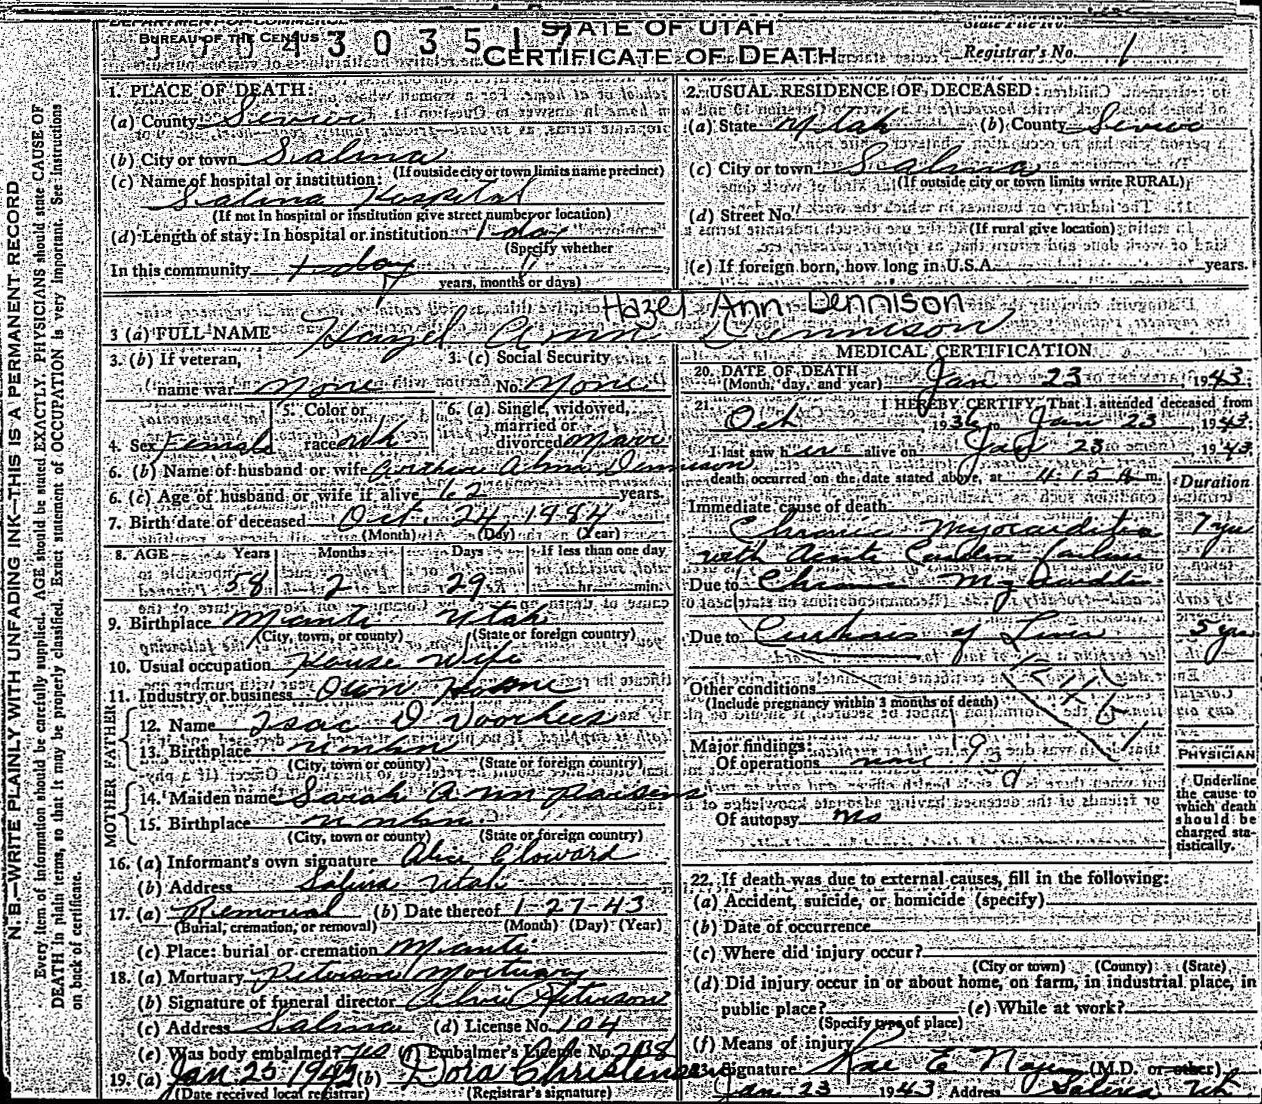 DEPARTMENT OF COMMERCE
BUREAU OF THE CENSUS
STATE OF UTAH
CERTIFICATE OF DEATH
State File No.
Registrar's No. 1
N.B.—WRITE PLAINLY WITH UNFADING INK—THIS IS A PERMANENT RECORD
Every item of information should be carefully supplied. AGE should be stated EXACTLY. PHYSICIANS should state CAUSE OF
DEATH in plain terms, so that it may be properly classified. Exact statement of OCCUPATION is very important. See instructions
on back of certificate.
1. PLACE OF DEATH:
(a) County Sevier
(b) City or town Salina
(If outside city or town limits name precinct)
(c) Name of hospital or institution:
Salina Hospital
(If not in hospital or institution give street number or location)
(d) Length of stay: In hospital or institution 1 day
(Specify whether
In this community 1 day
years, months or days)
2. USUAL RESIDENCE OF DECEASED:
(a) State Utah (b) County Sevier
(c) City or town Salina
(If outside city or town limits write RURAL)
(d) Street No.
(If rural give location)
(e) If foreign born, how long in U.S.A. years.
Hazel Ann Dennison
3 (a) FULL NAME Hazel Ann Dennison
3. (b) If veteran,
name war None
3. (c) Social Security
No. None
4. Sex Female
5. Color or
race
6. (a) Single, widowed,
married or
divorced Marr
6. (b) Name of husband or wife Alma Dennison
6. (c) Age of husband or wife if alive 62 years.
7. Birth date of deceased Oct. 24 1884
(Month) (Day) (Year)
8. AGE Years Months Days If less than one day
58 2 29 hr. min.
9. Birthplace Manti Utah
(City, town, or county) (State or foreign country)
10. Usual occupation House Wife
11. Industry or business Own Home
FATHER
12. Name Isac D Voorhees
13. Birthplace
(City, town or county) (State or foreign country)
MOTHER
14. Maiden name Sarah Ann
15. Birthplace
(City, town or county) (State or foreign country)
16. (a) Informant's own signature Alice Cloward
(b) Address Salina Utah
17. (a) Removal (b) Date thereof 1-27-43
(Burial, cremation, or removal) (Month) (Day) (Year)
(c) Place: burial or cremation Manti
18. (a) Mortuary Peterson Mortuary
(b) Signature of funeral director Peterson
(c) Address Salina (d) License No. 104
(e) Was body embalmed? yes (f) Embalmer's License No.
19. (a) Jan 25 1943 (b) Dora Christensen
(Date received local registrar) (Registrar's signature)
MEDICAL CERTIFICATION
20. DATE OF DEATH
(Month, day, and year) Jan 23, 1943;
21. I HEREBY CERTIFY, That I attended deceased from
Oct 1936 to Jan 23, 1943.
I last saw her alive on Jan 23 1943.
death occurred on the date stated above, at 4:15 A m.
Duration
Immediate cause of death
Chronic Myocarditis 7 yrs
with Acute
Due to Chronic Myocarditis
Due to Cirrhosis of Liver 5 yrs
Other conditions
(Include pregnancy within 3 months of death)
Major findings:
Of operations none
Of autopsy no
PHYSICIAN
Underline
the cause to
which death
should be
charged sta-
tistically.
22. If death was due to external causes, fill in the following:
(a) Accident, suicide, or homicide (specify)
(b) Date of occurrence
(c) Where did injury occur?
(City or town) (County) (State)
(d) Did injury occur in or about home, on farm, in industrial place, in
public place? (e) While at work?
(Specify type of place)
(f) Means of injury
23. Signature Rae E Noyes (M.D. or other)
Jan 23 1943 Address Salina Ut